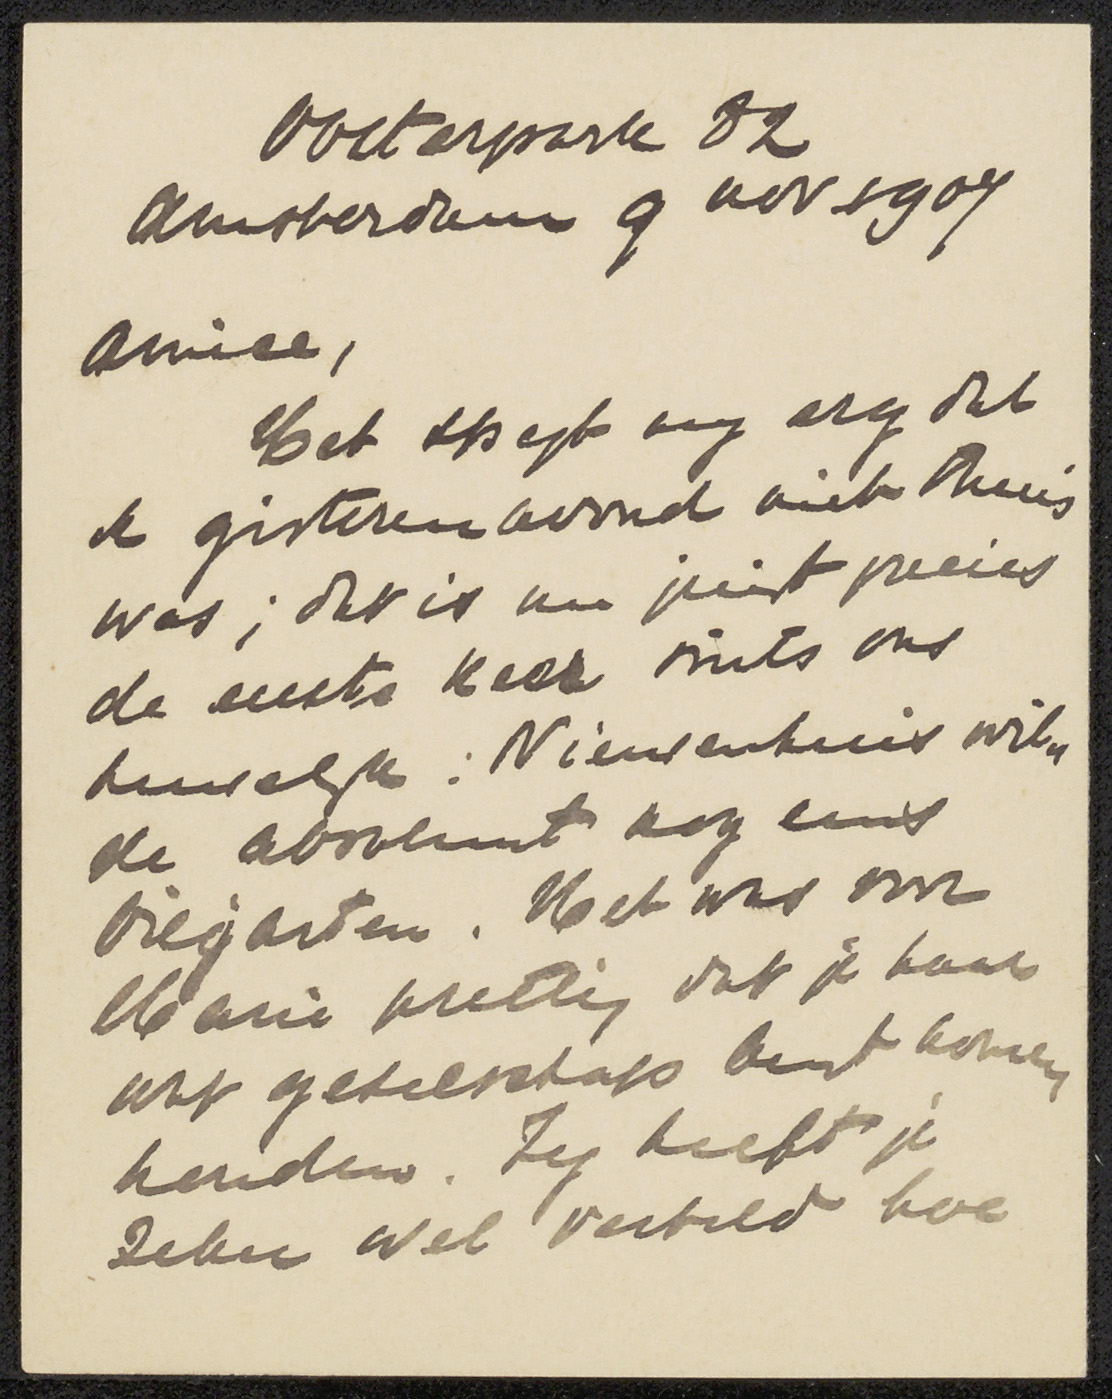 Oosterpark 82
Amsterdam 9 nov 1907
Amice,
Het spijt my erg dat
ik gisterenavond niet thuis
was; dat is nu juist precies
de eerste keer sints ons
huwelyk: Nieuwenhuis wil„
de absoluut nog eens
biljarten. Het was voor
Marie prettig dat je haar
wat gezelschap bent komen
houden. Zy heeft je
zeker wel verteld hoe